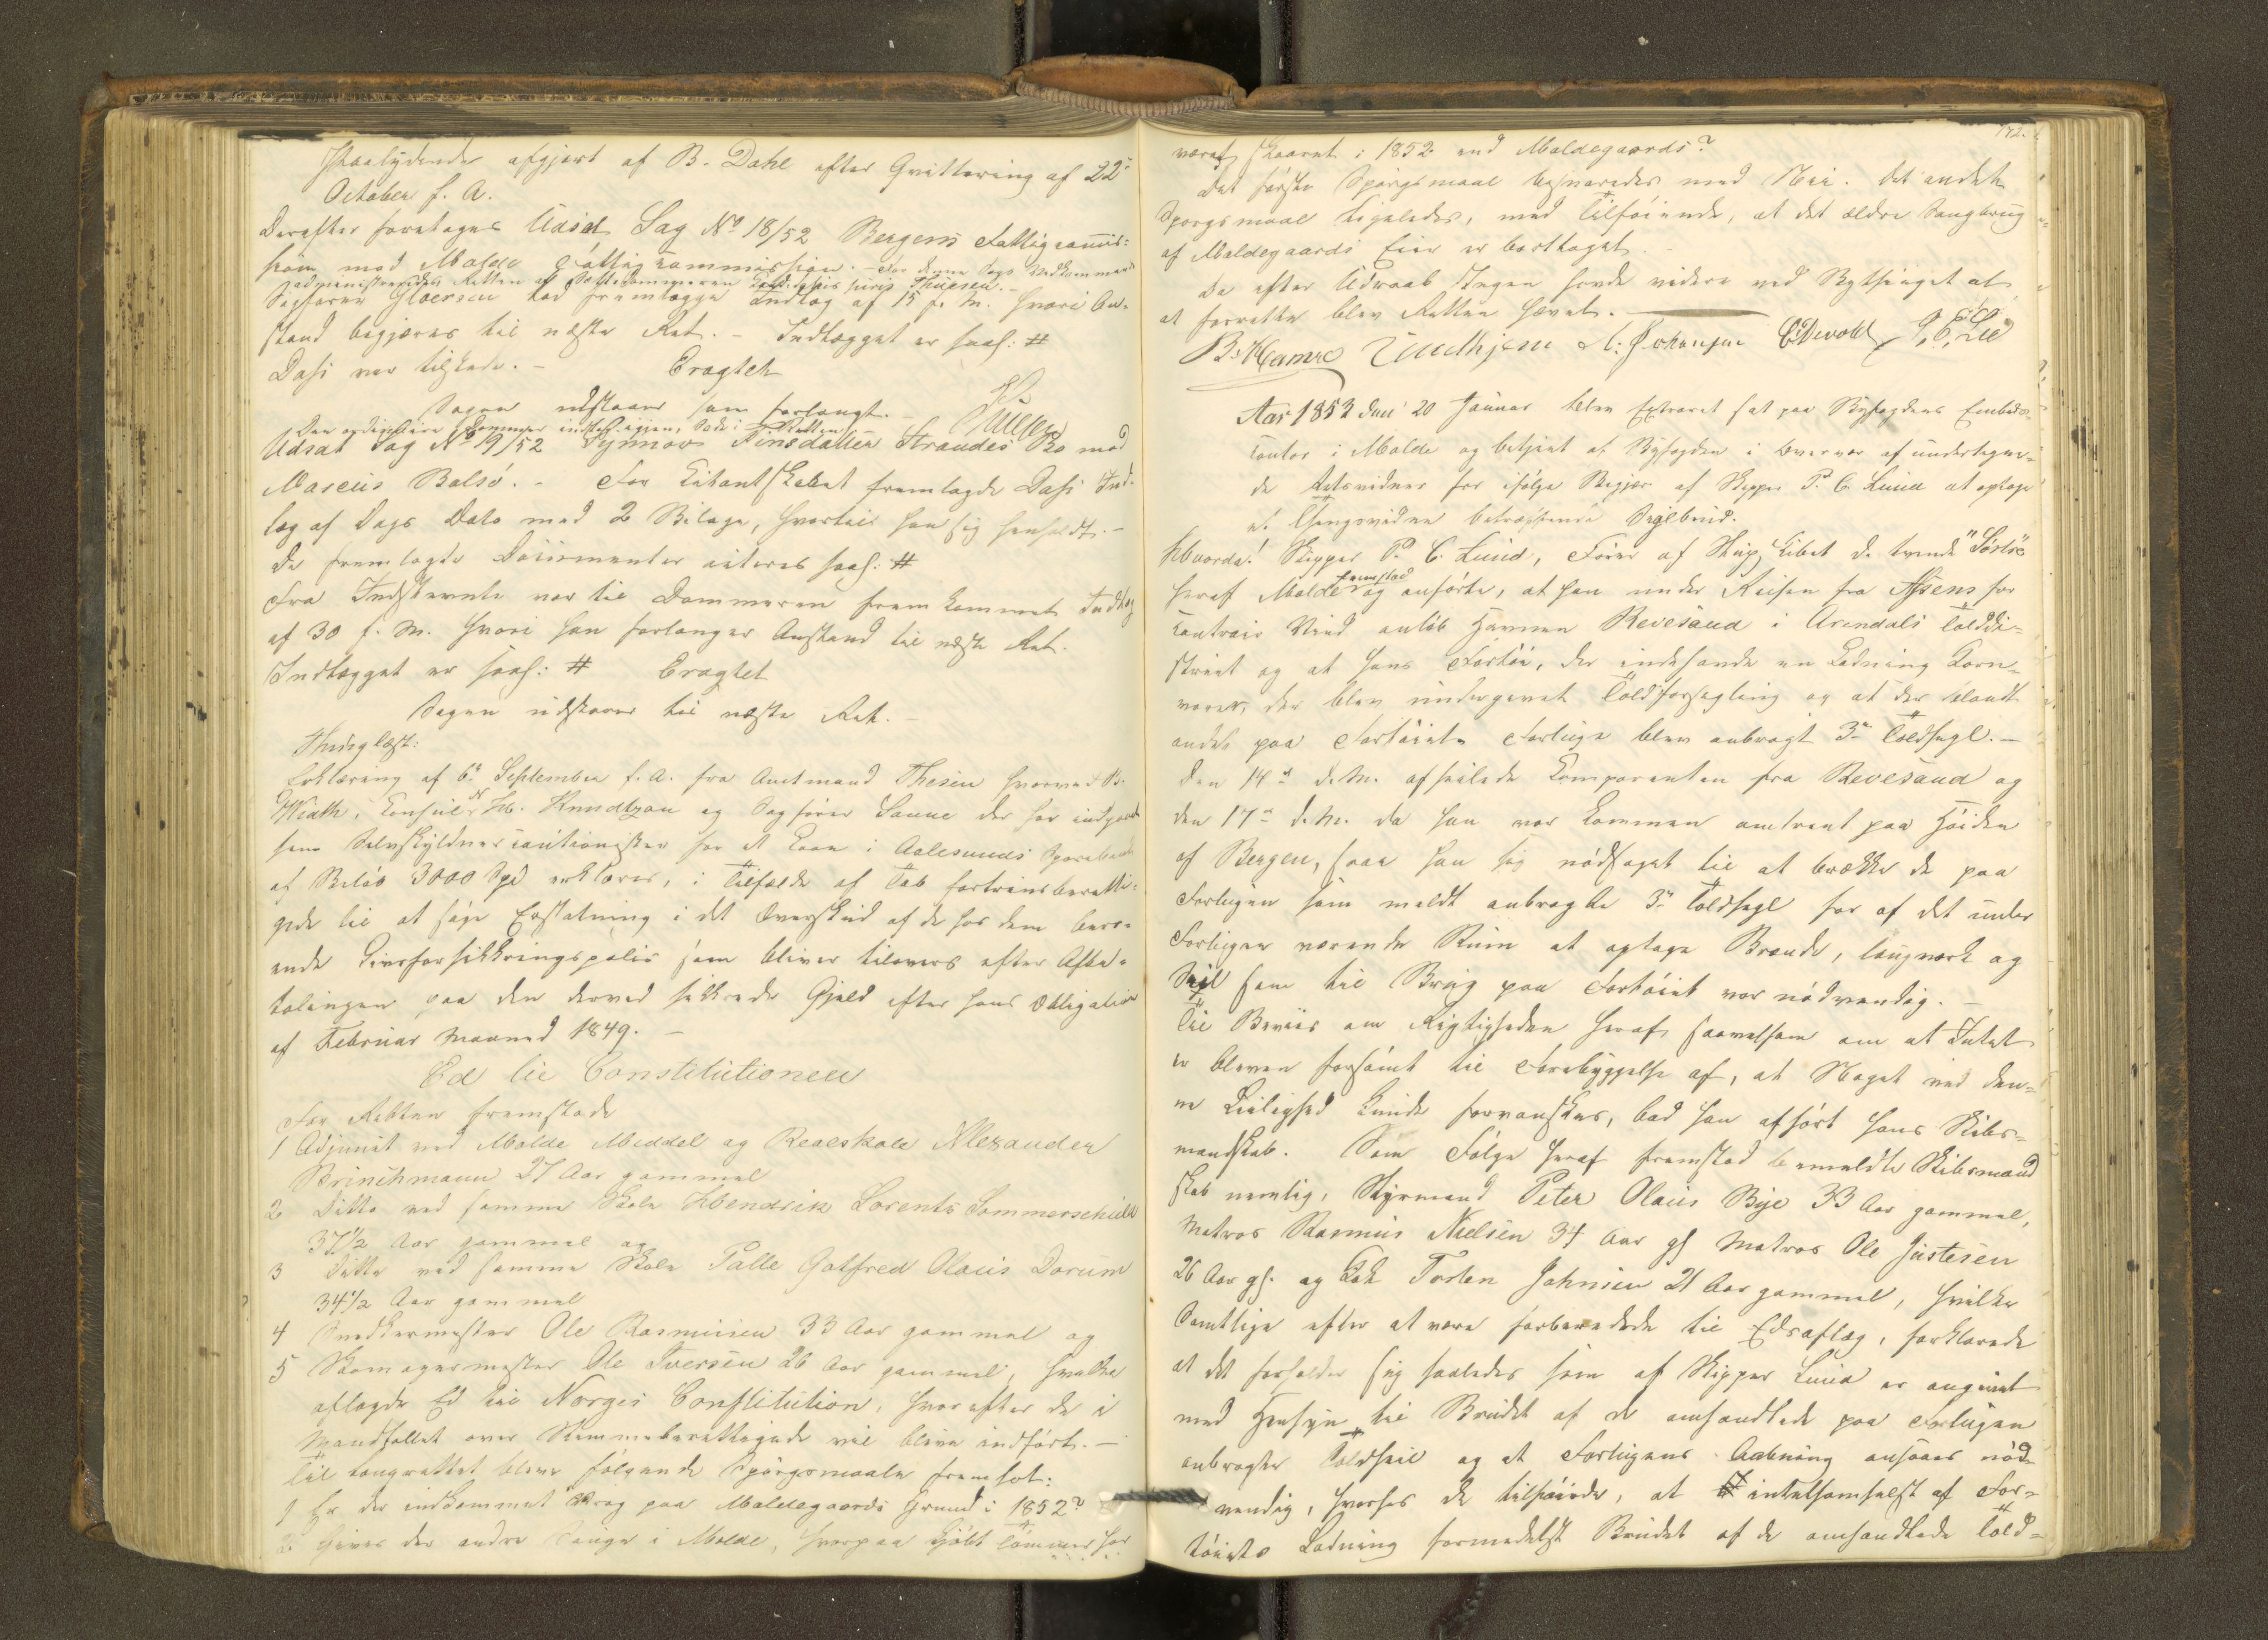 paalydende afgjort af B. Dahl efter Qvittering af 22de
October f. A.
Derefter foretoges Udsat Sag No 18/52 Bergens Fattigcommis-
sion mod Molde Fattig Commission. - For denne Sags Vedkommende
administreredes Retten af Sættedommeren Candidatus juris Thuesen. -
Sagfører Gloersen lod fremlægge Indlæg af 15 f. M. hvori An-
stand begjæres til næste Ret. - Indlægget er saal: #
Dahl var tilstede. - Eragtet
Sagen udstaaer som forlangt. -
Thuesen
Den ordinaire Dommer indtog igjen Sæde i Retten. -
Udsat Sag No 19/52 Synnøve Finsdatter Strandes Bo mod
Marcus Bolsø. - For Citantskabet fremlagde Dahl Ind-
læg af Dags Dato med 2 Bilage, hvortil han sig henholdt. -
De fremlagte Documenter inteeres saal: #
Fra Indstevnte var til Dommeren fremkommet Indlæg
af 30 f. M. hvori han forlanger Anstand til næste Ret.
Indlægget er saal: # Eragtet
Sagen udstaaer til næste Ret. -
Thinglæst:
Erklæring af 6te September f. A. fra Amtmand Thesen hvorved B.
Wiath, Consul N. H. Knudtzon og Sagfører Sanne der har indgaaet
som Selvskyldnercautionister for et Laan i Aalesunds Sparebank
af Beløb 3000 Spd erklæres, i Tilfælde af Tab fortrinsberetti-
gede til at søge Erstatning i det Overskud af de hos dem bero-
ende Livsforsikkringspolis som bliver tilovers efter Afbe-
talingen paa den derved sikkrede Gjeld efter hans Obligation
af Februar Maaned 1849. -
Ed til Constitutionen
For Retten fremstode
1 Adjunct ved Molde Middel og Realskole Alexander
Brinchmann 27 Aar gammel
2 Ditto ved samme Skole Hendrik Lorentz Sommerschield
37 1/2 Aar gammel og
3 Ditto ved samme Skole Palle Gotfred Olaus Dorum
34 1/2 Aar gammel
4 Snedkermester Ole Rasmussen 33 Aar gammel og
5 Skomagermester Ole Iversen 26 Aar gammel, hvilke
aflagde Ed til Norges Constitution, hvorefter de i
Mandtallet over Stemmeberettigede vil blive indført. -
Til Laugrettet bleve følgende Spørgsmaale fremsat:
1 Er der indkommet Brug paa Moldegaards Grund i 1852?
2 Haves der andre Sauge i Molde, hvorpaa kjøbt Tømmer har
172.
været skaaret i 1852 end Moldegaards?
Det første Spørgsmaal besvaredes med Nei. Det andet
Spørgsmaal ligeledes, med Tilføiende, at det ældre Saugbrug
af Moldegaards Eier er borttaget. -
Da efter Udraab Ingen havde videre ved Bythinget at
at forrette blev Retten hævet.
B. Hamre Lindhjem A. Johansen E Devold P. C. Lie
Aar 1853 den 20 Januar blev Extraret sat paa Byfogdens Embeds-
contor i Molde og betjent af Byfogden i Overvær af undertegne-
de Retsvidner for ifølge Begjær af Skipper P. C. Lund at optage
et Thingsvidne betræffende Segelbrud.
Hvorda! Skipper P. C. Lund, Fører af Skip Libet de tvende "Søstre"
heraf Molde fremstod og anførte, at han under Reisen fra Assens for
contrair Vind anløb Havnen Revesand i Arendals Tolddi-
strict og at hans Fartøi, der indehavde en Ladning Korn-
varer, der blev undergivet Toldforsegling og at der blandt
andet paa Fartøiets Forluge blev anbragt 3de Toldsegl. -
Den 14de d. M. afseilede Comparenten fra Revesand og
den 17de d. M. da han var kommen omtrent paa Høiden
af Bergen, saae han sig nødsaget til at brække de paa
Forlugen som meldt anbragte 3de Toldsegl for af det under
Forlugen værende Rum at optage Brænde, Taugværk og
Seil som til Brug paa Fartøiet var nødvendig. -
Til Beviis om Rigtigheden heraf, saavelsom om at Intet
er bleven forsømt til Forebyggelse af, at Noget ved den-
ne Leilighed kunde forvanskes, bad han afhørt hans Skibs-
mandskab. Som Følge heraf fremstod bemeldte Skibsmand
skab nemlig, Styrmand Peter Olaus Bye 33 Aar gammel,
Matros Rasmus Nielsen 34 Aar gl Matros Ole Justesen
26 Aar gl. og Kok Torsten Johnsen 21 Aar gammel, hvilke
Samtlige efter at være forberedede til Edsaflæg, forklarede
at det forholder sig saaledes som af Skipper Lund er angivet
med Hensyn til Bruddet af de omhandlede paa Forlugen
anbragte Toldseil og at Forlugens Aabning ansaaes nød-
vendig, hvorhos de tilføiede, at intetsomhelst af Far-
tøiets Ladning formedelst Bruddet af de omhandlede Told-